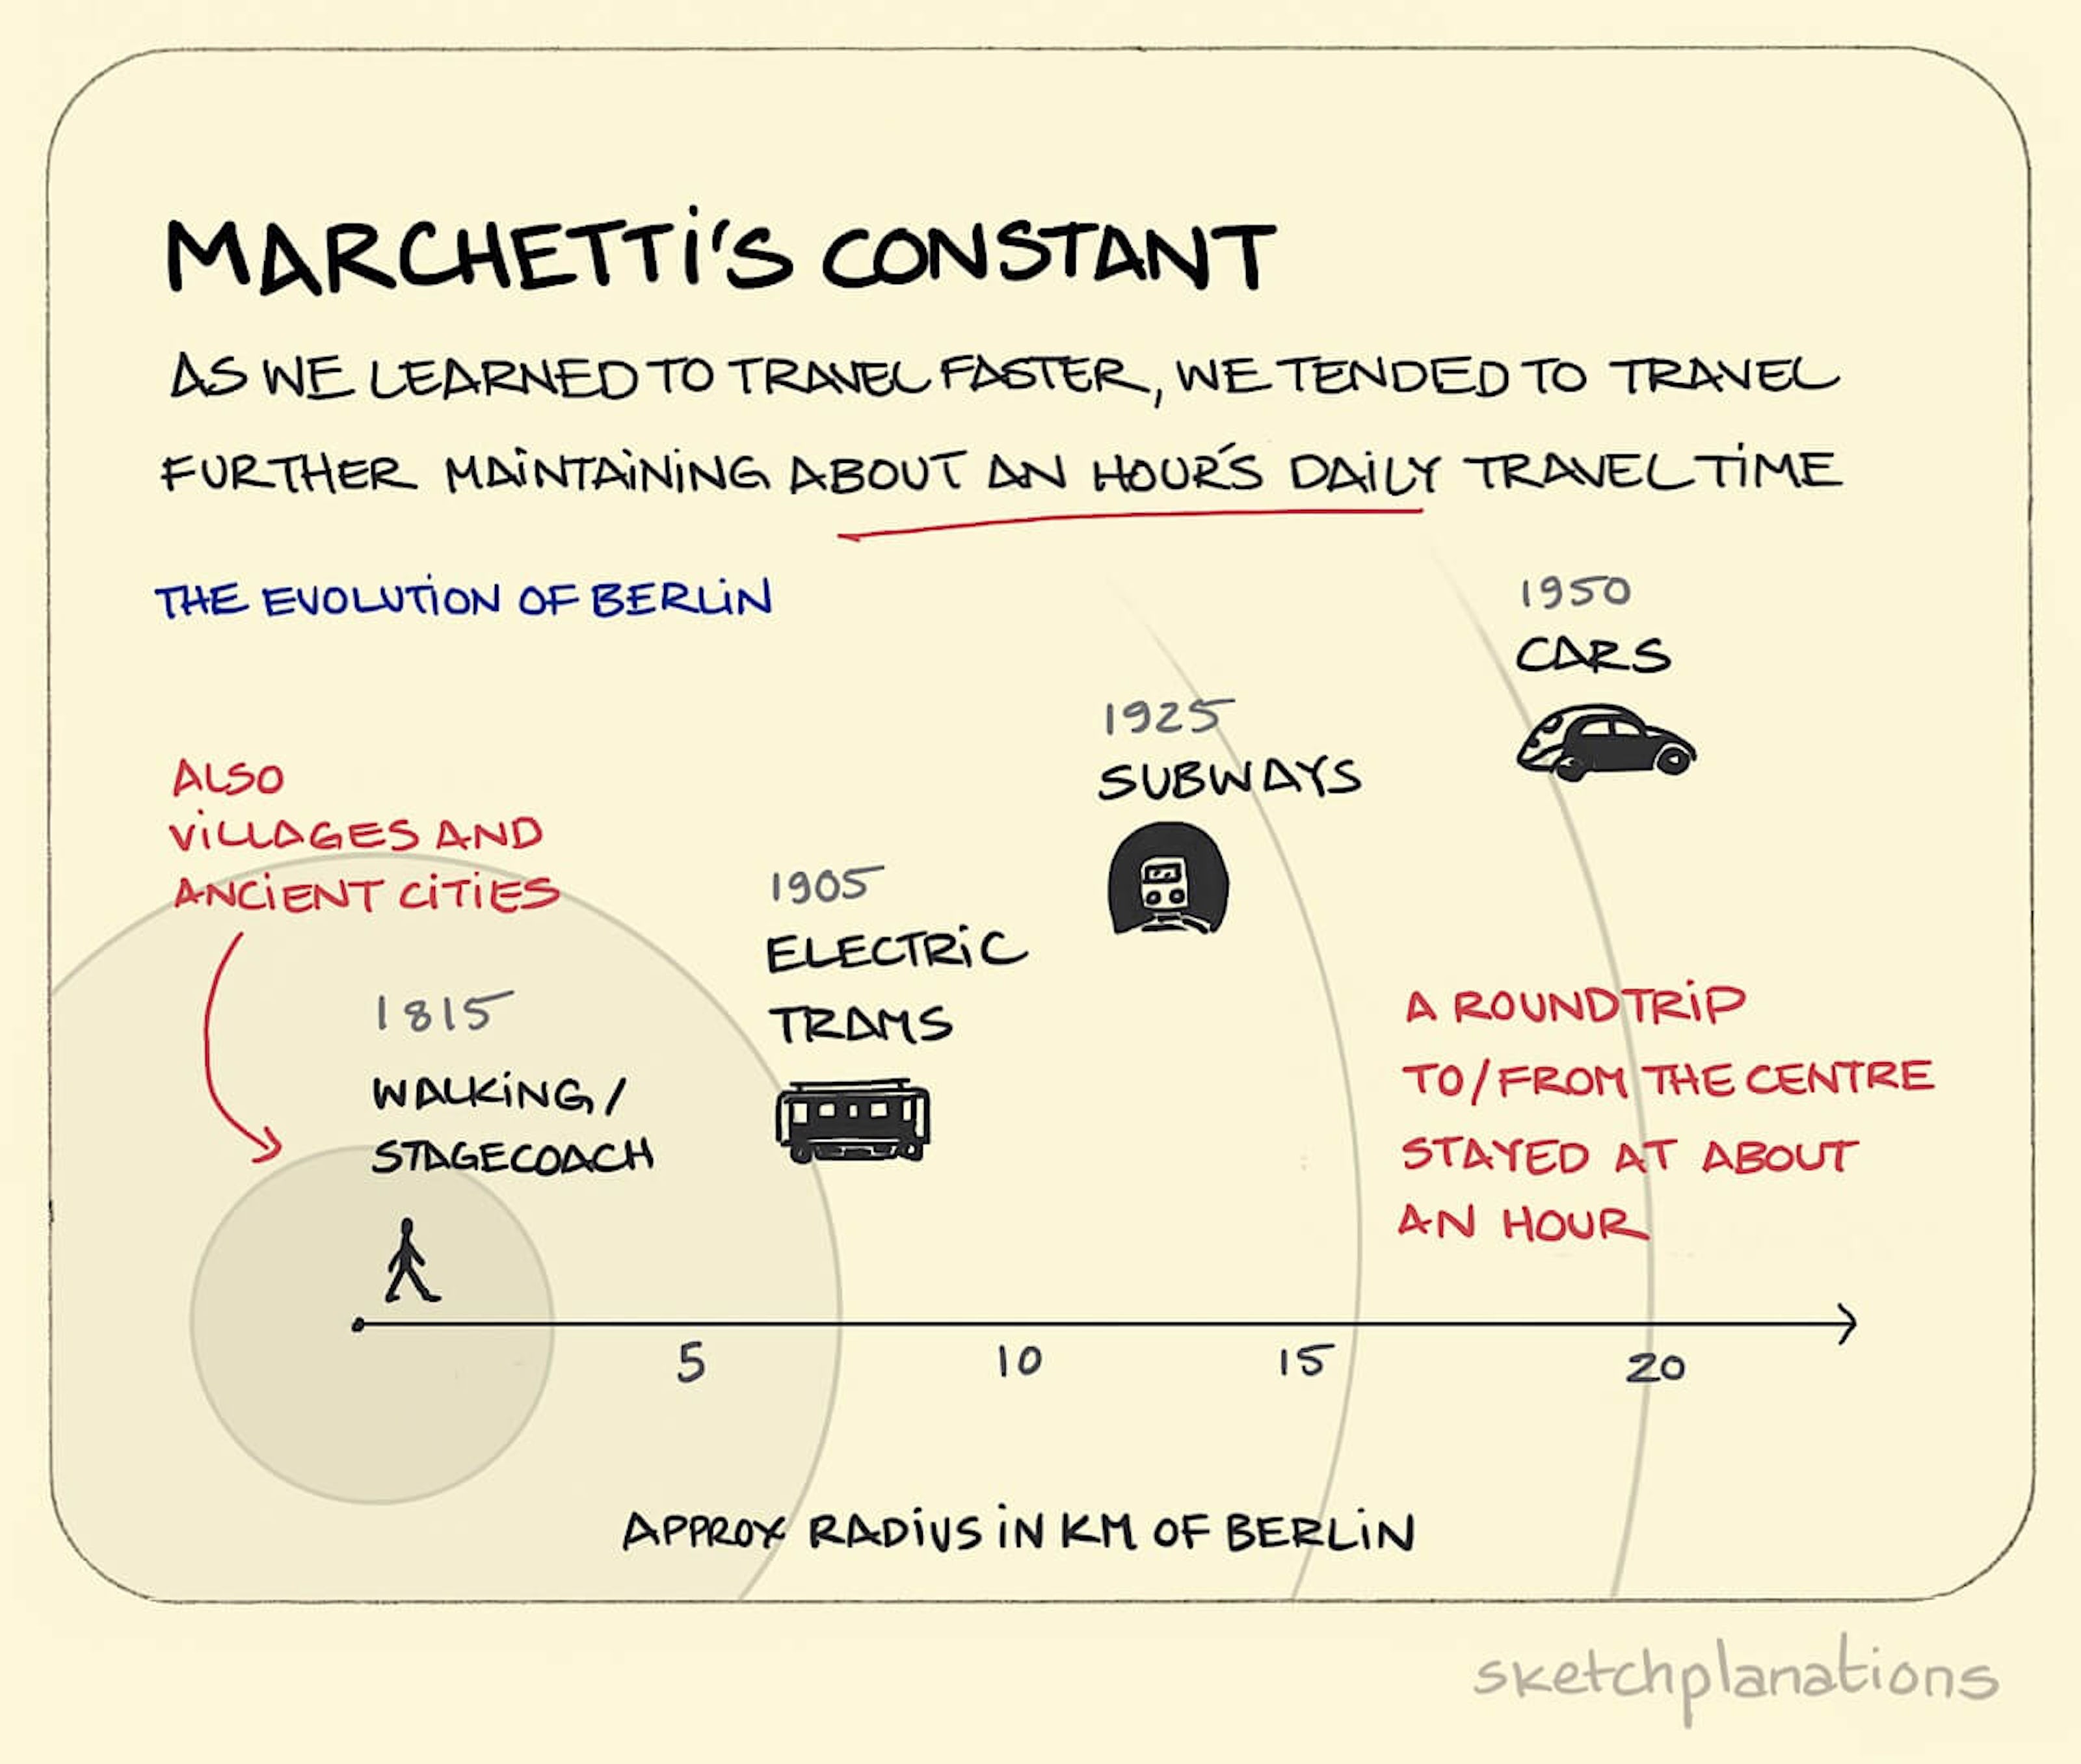 MARCHETTI'S CONSTANT
AS WE LEARNED TO TRAVEL FASTER, WE TENDED TO TRAVEL
FURTHER MAINTAINING ABOUT AN HOUR'S DAILY TRAVEL TIME
THE EVOLUTION OF BERLIN
1950
CARS
1925
SUBWAYS
ALSO
VILLAGES AND
ANCIENT CITIES
1905
ELECTRIC
TRAMS
1815
WALKING/
STAGECOACH
A ROUNDTRIP
TO/FROM THE CENTRE
STAYED AT ABOUT
AN HOUR
5 10 15 20
APPROX RADIUS IN KM OF BERLIN
sketchplanations